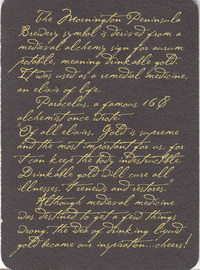 The Mornington Peninsula
Brewery symbol is derived from a
medieval alchemy sign for aurum
potabile, meaning drinkable gold.
It was used as a remedial medicine,
an elixir of life.
Paracelus, a famous 16
alchemist once wrote:
"Of all elixirs, Gold is supreme
and the most important for us, for
it can keep the body indestructable.
Drinkable gold will cure all
illnesses, it renews and restores."
Although medieval medicine
was destined to get a few things
wrong, the idea of drinking liquid
gold became our inspiration...cheers!